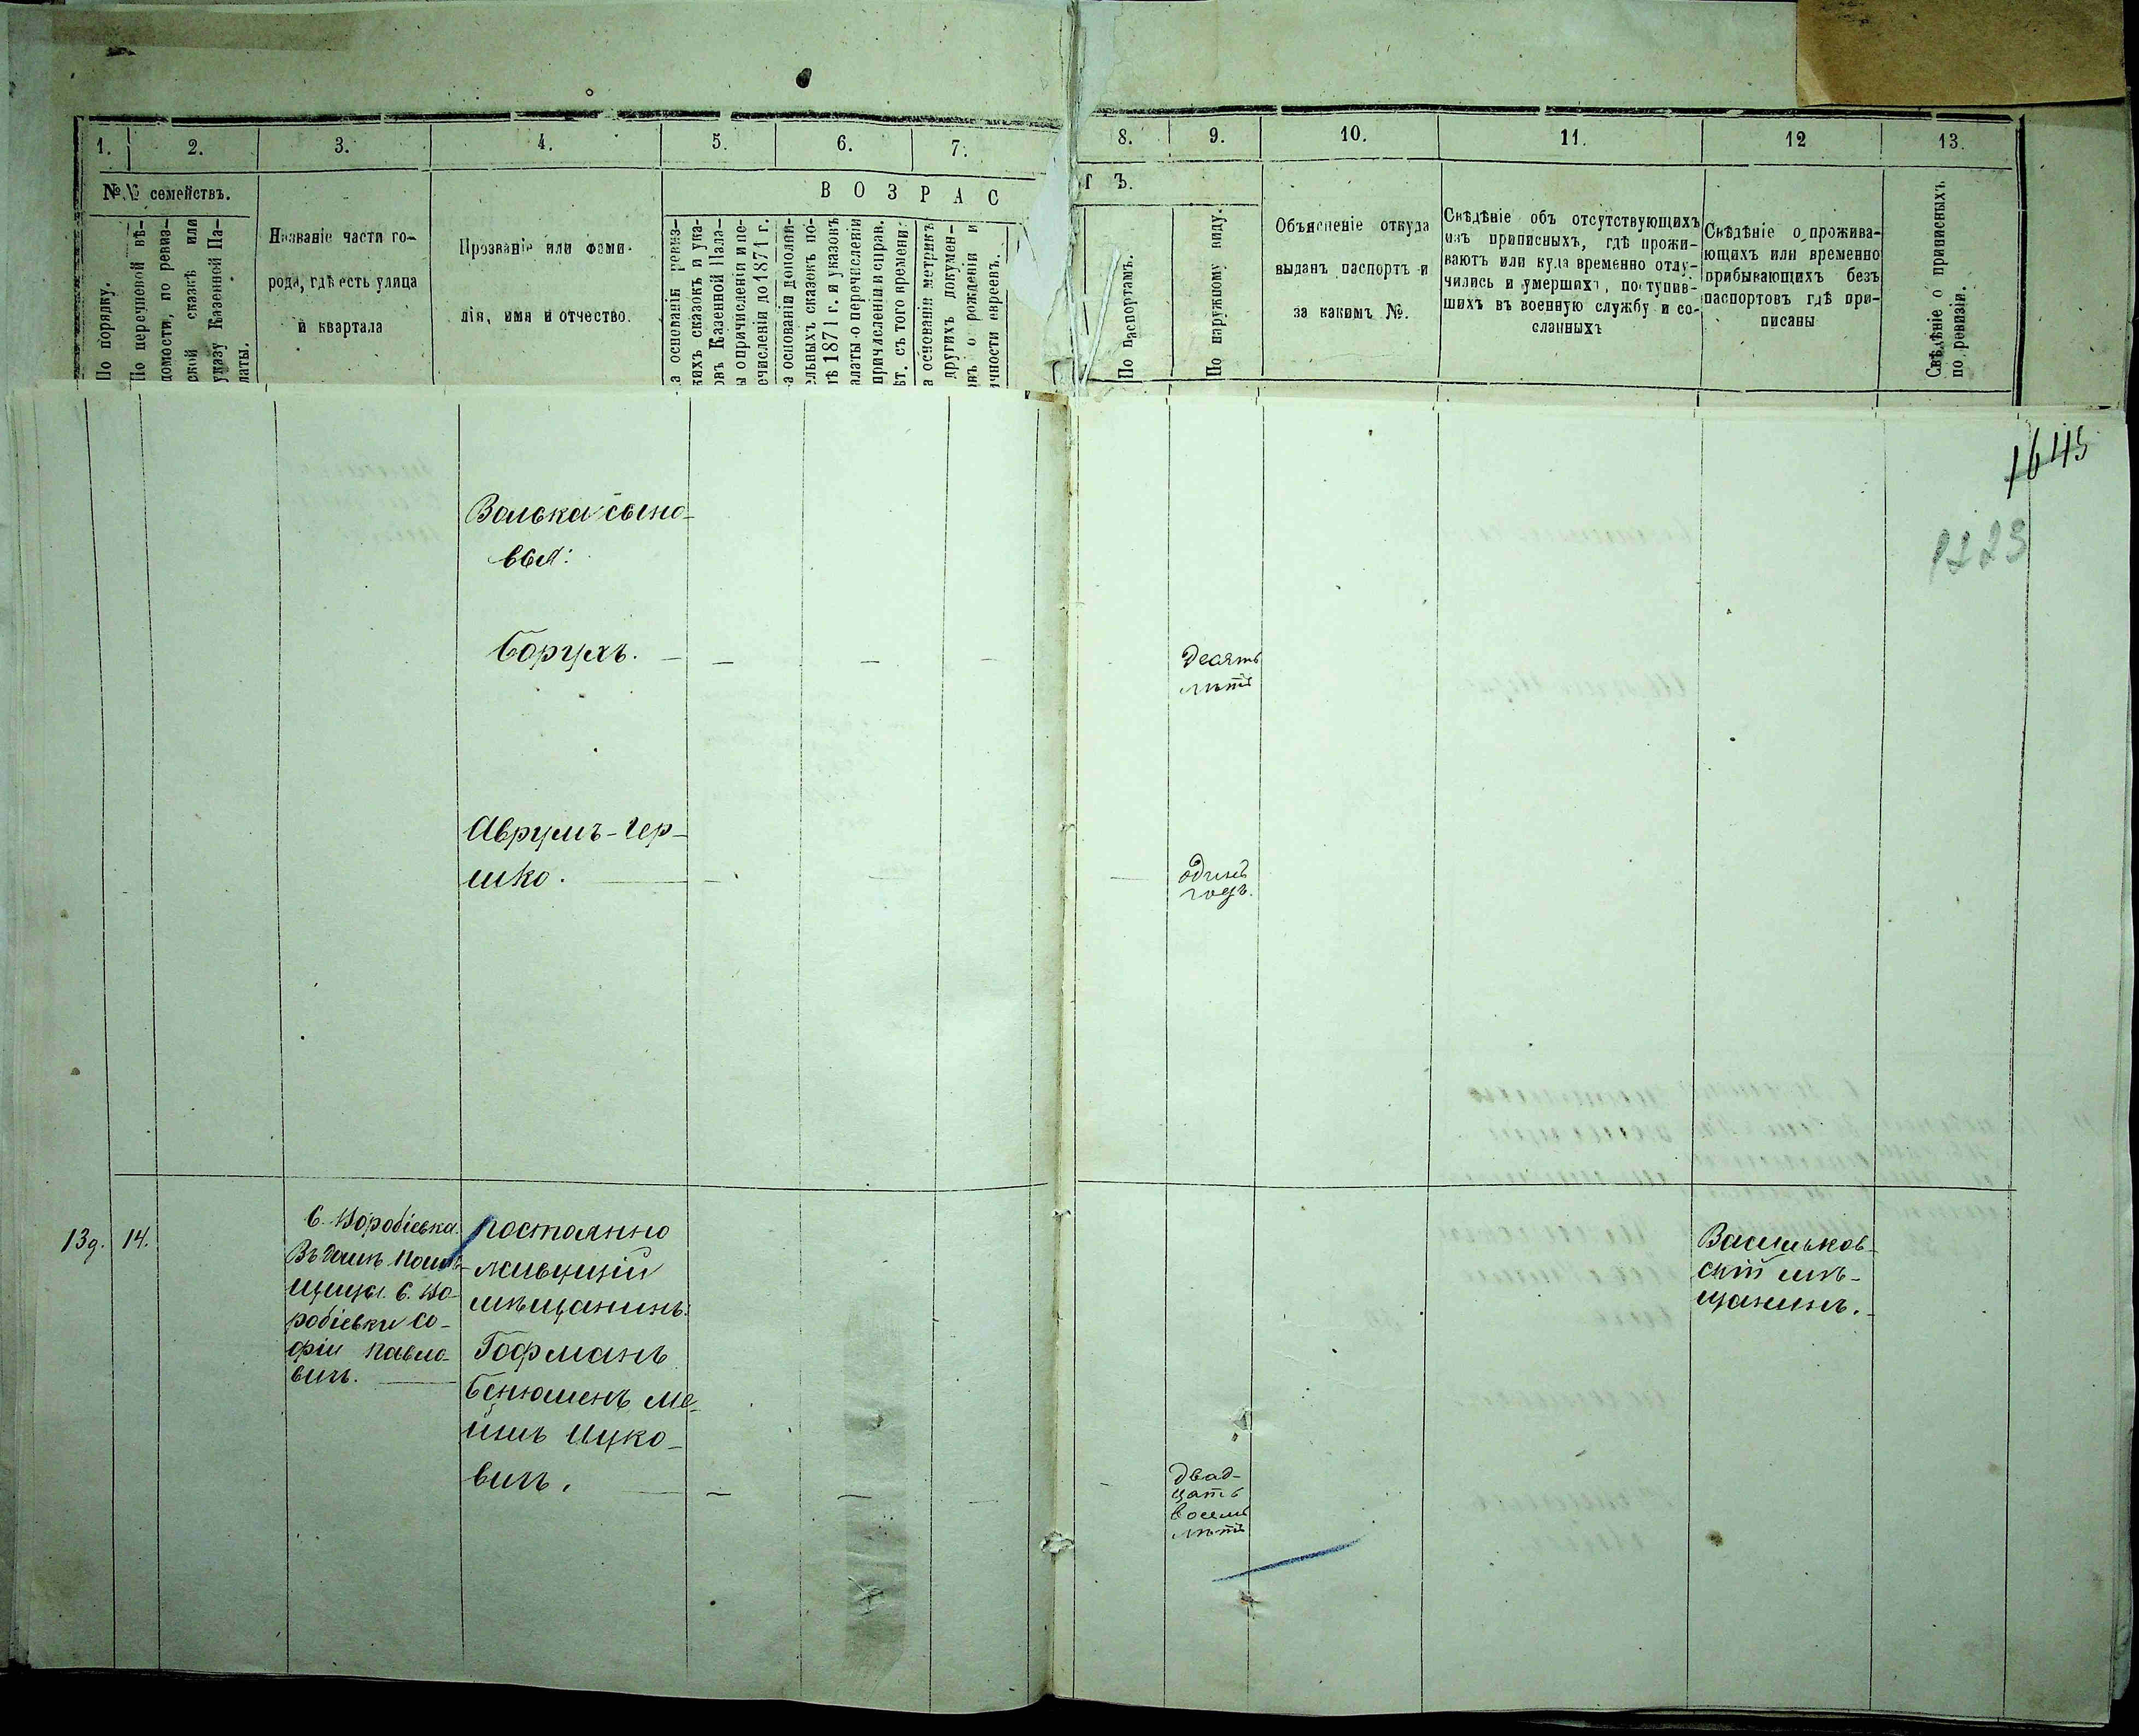 1. 2. 3. 4. 5. 6. 7. 8. 9. 10. 11. 12 13.
№ № семействъ.
По порядку.
По перечневой вѣ-
домости, по ревиз-
ской сказкѣ или
указу Казенной Па-
латы.
Названіе части го-
рода, гдѣ есть улица
и квартала
Прозваніе или фами-
лія, имя и отчество.
В О З Р А С
Т Ъ.
а основаніи ревиз-
кихъ сказокъ и ука-
овъ Казенной Пала-
ы о причисленіи и пе-
ечисленіи до 1871 г.
а основаніи дополни-
ельныхъ сказокъ по-
лѣ 1871 г. и указовъ
алаты о перечисленіи
причисленіи и справ.
ѣт. съ того времени.
а основаніи метрикъ
другихъ докумен-
овъ о рожденіи и
ичности евреевъ.
По паспортамъ.
По наружному виду.
Объясненіе откуда
выданъ паспортъ и
за какимъ №.
Свѣдѣніе объ отсутствующихъ
изъ приписныхъ, гдѣ прожи-
ваютъ или куда временно отлу-
чились и умершихъ, поступив-
шихъ въ военную службу и со-
сланныхъ
Свѣдѣніе о прожива-
ющихъ или временно
прибывающихъ безъ
паспортовъ гдѣ при-
писаны
Свѣдѣніе о приписныхъ
по ревизіи.
1645
1223
Волька сыно-
вья:
Борухъ.
десять
лѣтъ
Аврумъ-Гер-
шко.
одинъ
годъ.
139. 14.
С. Воробіевка.
Въ домѣ помѣ-
щицы С. Во-
робіевки Со-
фіи Павло-
вичъ.
постоянно
живущій
мѣщанинъ:
Гофманъ
Бенюменъ Ме-
ишъ Ицко-
вичъ.
двад-
цать
восемь
лѣтъ
Васильков-
скій мѣ-
щанинъ.